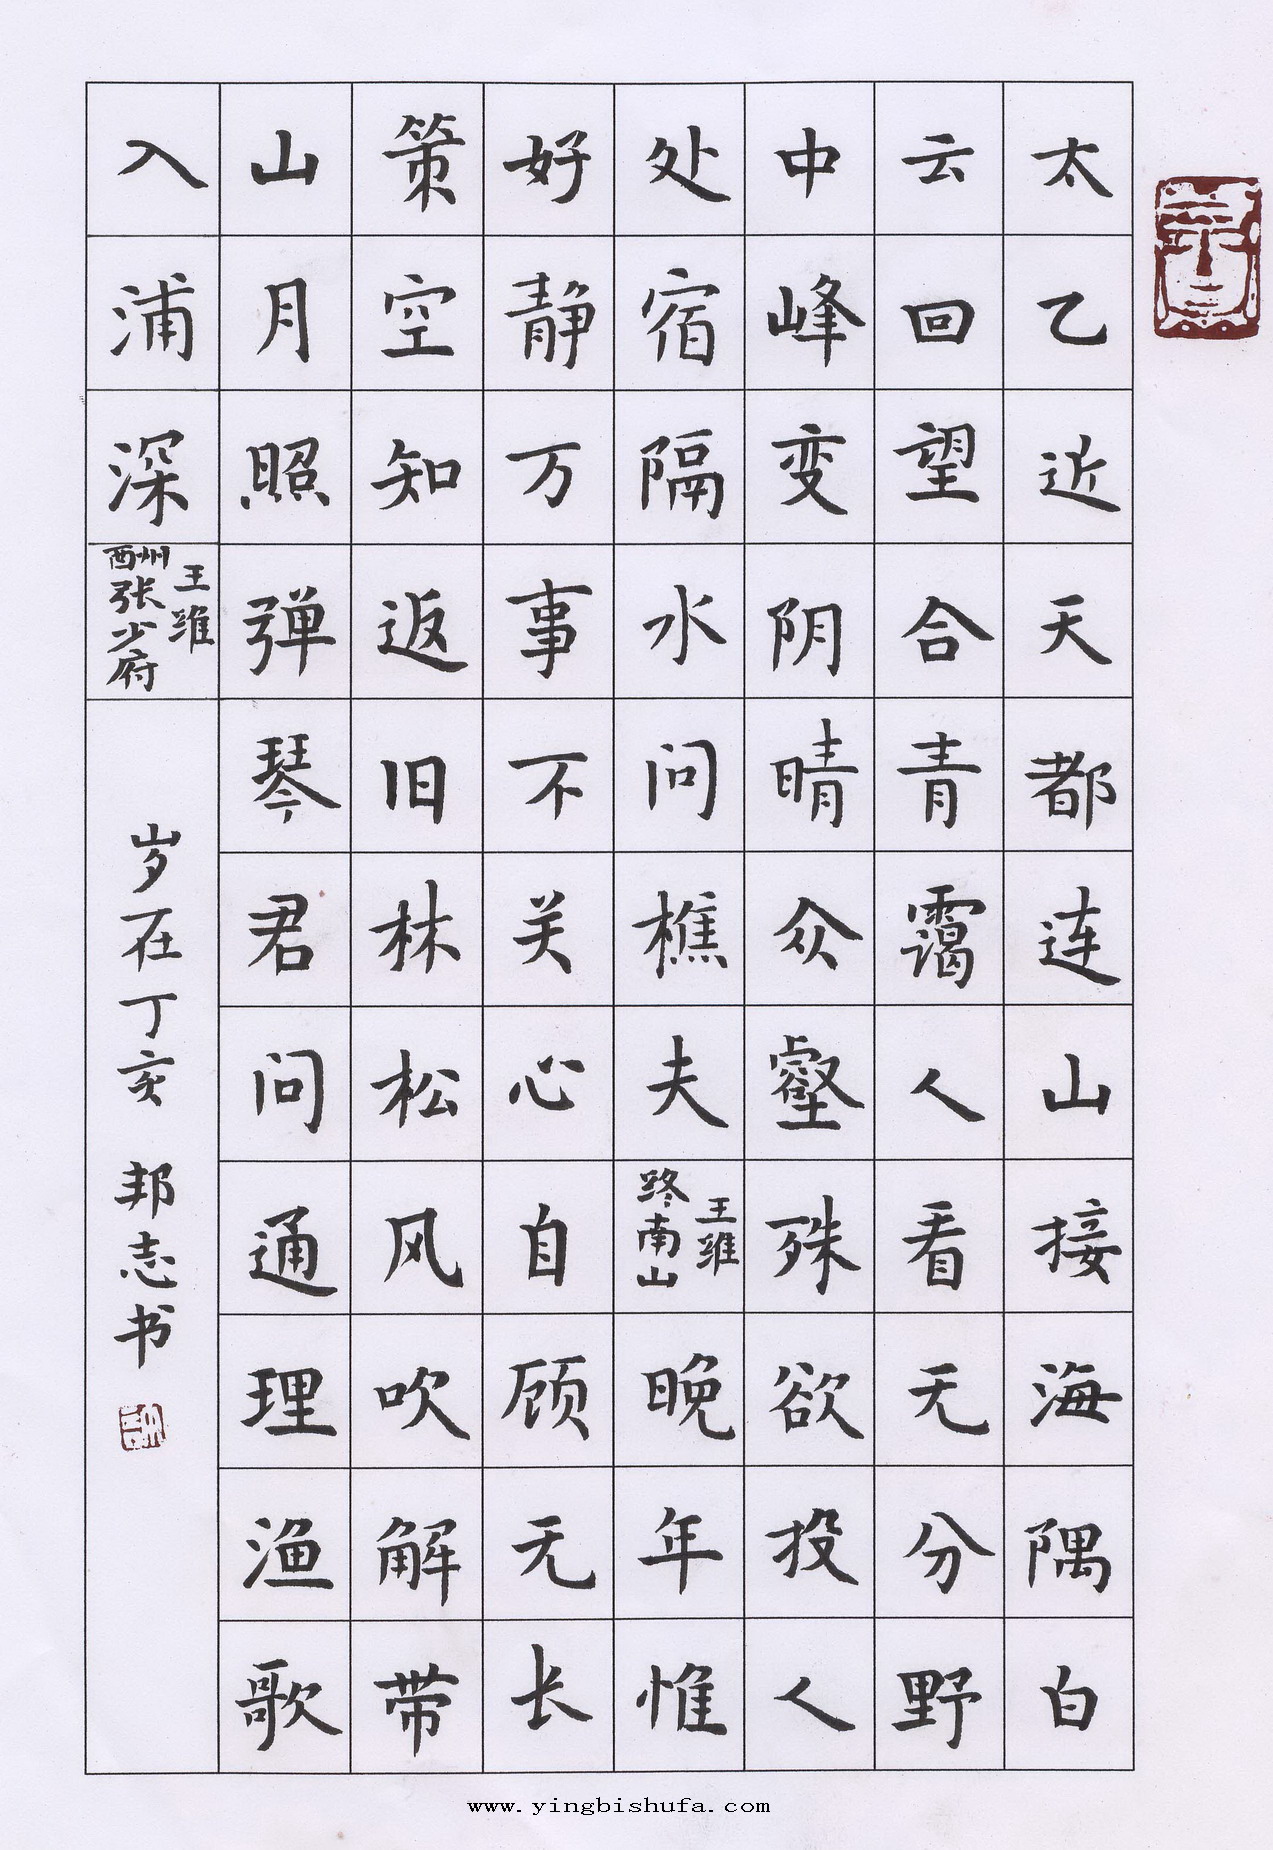 太乙近天都连山接海隅白
云回望合青霭人看无分野
中峰变阴晴众壑殊欲投人
处宿隔水问樵夫
王维
终南山
晚年惟
好静万事不关心自顾无长
策空知返旧林松风吹解带
山月照弹琴君问通理渔歌
入浦深
王维
酬张少府
岁在丁亥 邦志书
www.yingbishufa.com